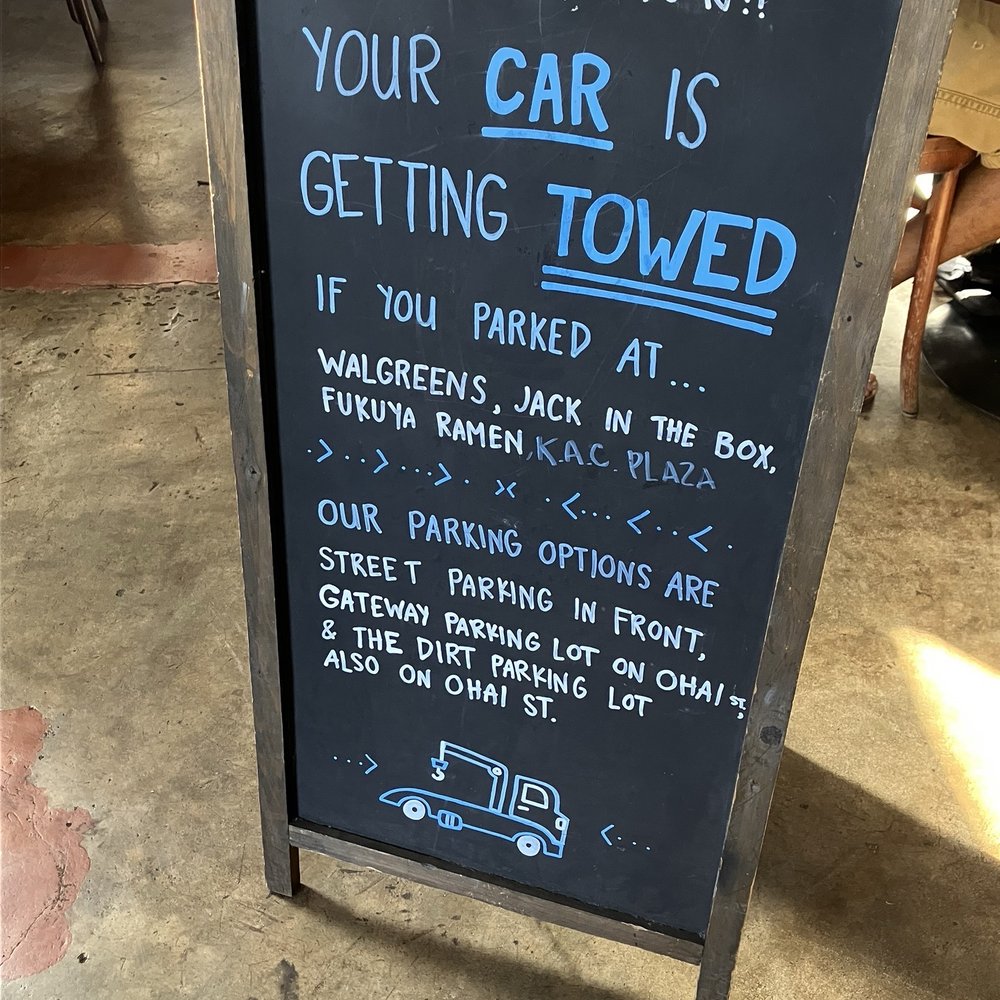 YOUR CAR IS
GETTING TOWED
IF YOU PARKED AT...
WALGREENS, JACK IN THE BOX,
FUKUYA RAMEN, K.A.C. PLAZA
OUR PARKING OPTIONS ARE
STREET PARKING IN FRONT,
GATEWAY PARKING LOT ON OHAI ST,
& THE DIRT PARKING LOT
ALSO ON OHAI ST.